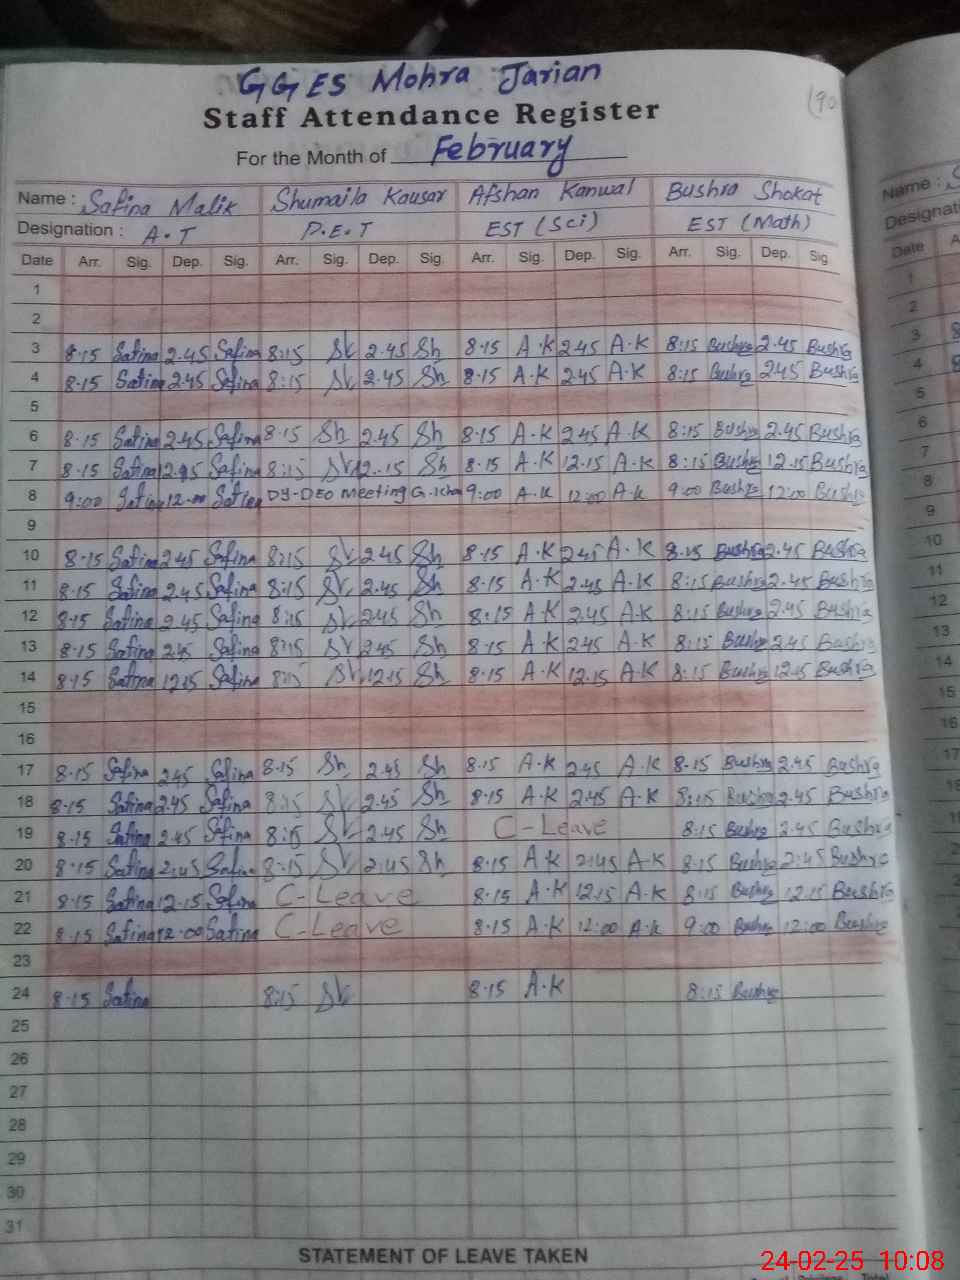 GGES Mohra Jarian
Staff Attendance Register
For the Month of February
Name : Safina Malik Shumaila Kausar Afshan Kanwal Bushra Shokat
Designation : A.T P.E.T EST (Sci) EST (Math)
Date Arr. Sig. Dep. Sig. Arr. Sig. Dep. Sig. Arr. Sig. Dep. Sig. Arr. Sig. Dep. Sig
1
2
3 8.15 Safina 2.45 Safina 8:15 2.45 Sh 8.15 A.K 2.45 A.K 8:15 Bushra 2.45 Bushra
4 8.15 Safina 2.45 Safina 8:15 2.45 Sh 8.15 A.K 2.45 A.K 8:15 Bushra 2.45 Bushra
5
6 8.15 Safina 2.45 Safina 8.15 Sh 2.45 Sh 8.15 A.K 2.45 A.K 8:15 Bushra 2.45 Bushra
7 8.15 Safina Safina 8:15 12.15 Sh 8.15 A.K 12.15 A.K 8:15 Bushra 12.15 Bushra
8 9:00 Safina 12.00 Safina DY-DEO Meeting 9:00 A.K 12:00 A.K 9:00 Bushra 12:00 Bushra
9
10 8.15 Safina 2.45 Safina 8:15 2.45 Sh 8.15 A.K 2.45 A.K 8.15 Bushra 2.45 Bushra
11 8.15 Safina 2.45 Safina 8:15 2.45 Sh 8.15 A.K 2.45 A.K 8:15 Bushra 2.45 Bushra
12 8.15 Safina 2.45 Safina 8:15 2.45 Sh 8:15 A.K 2.45 A.K 8:15 Bushra 2.45 Bushra
13 8.15 Safina 2.45 Safina 8:15 2.45 Sh 8.15 A.K 2.45 A.K 8:15 Bushra 2.45 Bushra
14 8.15 Safina 12.15 Safina 8:15 12.15 Sh 8.15 A.K 12.15 A.K 8:15 Bushra 12.15 Bushra
15
16
17 8.15 Safina 2.45 Safina 8.15 Sh 2.45 Sh 8.15 A.K 2.45 A.K 8.15 Bushra 2.45 Bushra
18 8.15 Safina 2.45 Safina 8:15 2.45 Sh 8.15 A.K 2.45 A.K 8:15 Bushra 2.45 Bushra
19 8.15 Safina 2.45 Safina 8:15 2.45 Sh C-Leave 8:15 Bushra 2.45 Bushra
20 8.15 Safina 2:45 Safina 8.15 2:45 Sh 8.15 A.K 2:45 A.K 8:15 Bushra 2:45 Bushra
21 8.15 Safina 12.15 Safina C-Leave 8.15 A.K 12.15 A.K 8:15 Bushra 12.15 Bushra
22 8.15 Safina 12.00 Safina C-Leave 8.15 A.K 12:00 A.K 9:00 Bushra 12:00 Bushra
23
24 8.15 Safina 8:15 8.15 A.K 8:15 Bushra
25
26
27
28
29
30
31
STATEMENT OF LEAVE TAKEN
24-02-25 10:08
Name :
Date
1
2
3
4
5
6
7
8
9
10
11
12
13
14
15
16
17